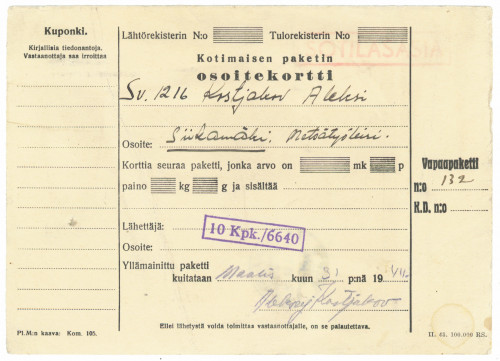 Kuponki.
Kirjallisia tiedonantoja.
Vastaanottaja saa irroittaa
Lähtörekisterin N:o Tulorekisterin N:o
SOTILASASIA
Kotimaisen paketin
osoitekortti
Sv. 1216 Kostjakov Aleksi
Osoite: Siikamäki, Metsätyöleiri.
Korttia seuraa paketti, jonka arvo on mk p
paino kg g ja sisältää
Vapaapaketti
n:o 132
K.D. n:o
Lähettäjä:
10 Kpk./6640
Osoite:
Yllämainittu paketti
kuitataan Maalis kuun 31 p:nä 19
Kostjakov
Ellei lähetystä voida toimittaa vastaanottajalle, on se palautettava.
Pl.M:n kaava: Kom. 105.
II. 41. 100.000 RS.